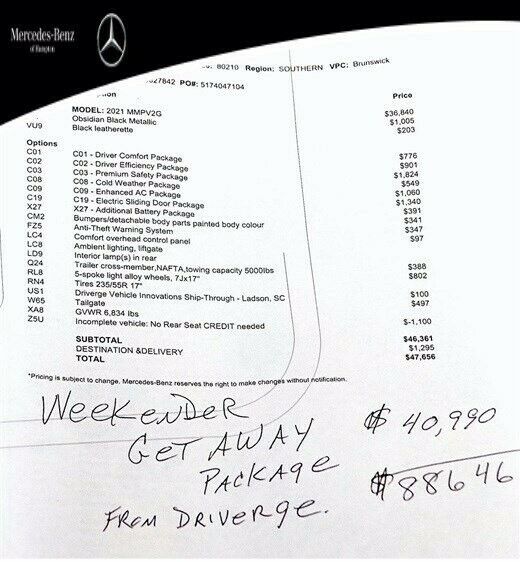 Mercedes-Benz
of Hampton
80210 Region: SOUTHERN VPC: Brunswick
27842 PO#: 5174047104
Price
MODEL: 2021 MMPV2G $36,840
Obsidian Black Metallic $1,005
VU9 Black leatherette $203
Options
C01 C01 - Driver Comfort Package $776
C02 C02 - Driver Efficiency Package $901
C03 C03 - Premium Safety Package $1,824
C08 C08 - Cold Weather Package $549
C09 C09 - Enhanced AC Package $1,060
C19 C19 - Electric Sliding Door Package $1,340
X27 X27 - Additional Battery Package $391
CM2 Bumpers/detachable body parts painted body colour $341
FZ5 Anti-Theft Warning System $347
LC4 Comfort overhead control panel $97
LC8 Ambient lighting, liftgate
LD9 Interior lamp(s) in rear
Q24 Trailer cross-member,NAFTA,towing capacity 5000lbs $388
RL8 5-spoke light alloy wheels, 7Jx17" $802
RN4 Tires 235/55R 17"
US1 Driverge Vehicle Innovations Ship-Through - Ladson, SC $100
W65 Tailgate $497
XA8 GVWR 6,834 lbs
Z5U Incomplete vehicle: No Rear Seat CREDIT needed $-1,100
SUBTOTAL $46,361
DESTINATION &DELIVERY $1,295
TOTAL $47,656
*Pricing is subject to change. Mercedes-Benz reserves the right to make changes without notification.
WEEKENDER
GET AWAY $ 40,990
PACKAGE
FROM DRIVERGE. $88646